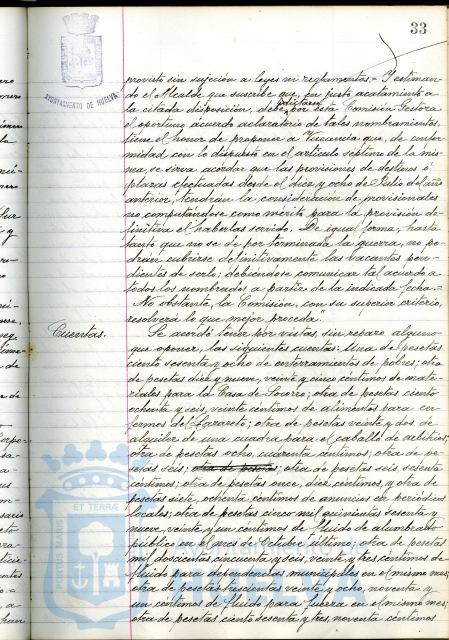 33
AYUNTAMIENTO DE HUELVA
provisto sin sujeción a leyes ni reglamentos.= Y estiman-
do el Alcalde que suscribe que, en justo acatamiento a
la citada disposición, debe por esta Comisión Gestora
el oportuno acuerdo aclaratorio de tales nombramientos,
tiene el honor de proponer a Vuecencia que, de confor-
midad con lo dispuesto en el artículo séptimo de la mis-
ma, se sirva acordar que las provisiones de destinos ó
plazas efectuadas desde el diez y ocho de Julio del año
anterior, tendrán la consideración de provisionales
no computándose como mérito para la provisión de-
finitiva el haberlas servido. De igual forma, hasta
tanto que no se de por terminada la guerra, no po-
drán cubrirse definitivamente las vacantes pen-
dientes de serlo; debiéndose comunicar tal acuerdo a
todos los nombrados a partir de la indicada fecha.=
No obstante, la Comisión, con su superior criterio,
resolverá lo que mejor proceda".
Cuentas.
Se acordó tener por vistas, sin reparo alguno
que oponer, las siguientes cuentas: Una de pesetas
ciento sesenta y ocho de enterramientos de pobres; otra
de pesetas diez y nueve, veinte y cinco céntimos de mate-
riales para la Casa de Socorro; otra de pesetas ciento
ochenta y seis, veinte céntimos de alimentos para en-
fermos del Lazareto; otra de pesetas veinte y dos de
alquiler de una cuadra para el caballo de arbitrios;
otra de pesetas ocho, cuarenta céntimos; otra de pe-
setas seis; otra de pesetas; otra de pesetas seis, sesenta
céntimos; otra de pesetas once, diez céntimos, y otra de
pesetas siete, ochenta céntimos de anuncios en periódicos
locales; otra de pesetas cinco mil quinientas sesenta y
nueve, veinte y un céntimos de fluido de alumbrado
público en el mes de Octubre último; otra de pesetas
mil doscientas cincuenta y seis, veinte y tres céntimos de
fluido para dependencias municipales en el mismo mes;
otra de pesetas trescientas veinte y ocho, noventa y
un céntimos de fluido para fuerza en el mismo mes;
otra de pesetas ciento sesenta y tres, noventa céntimos